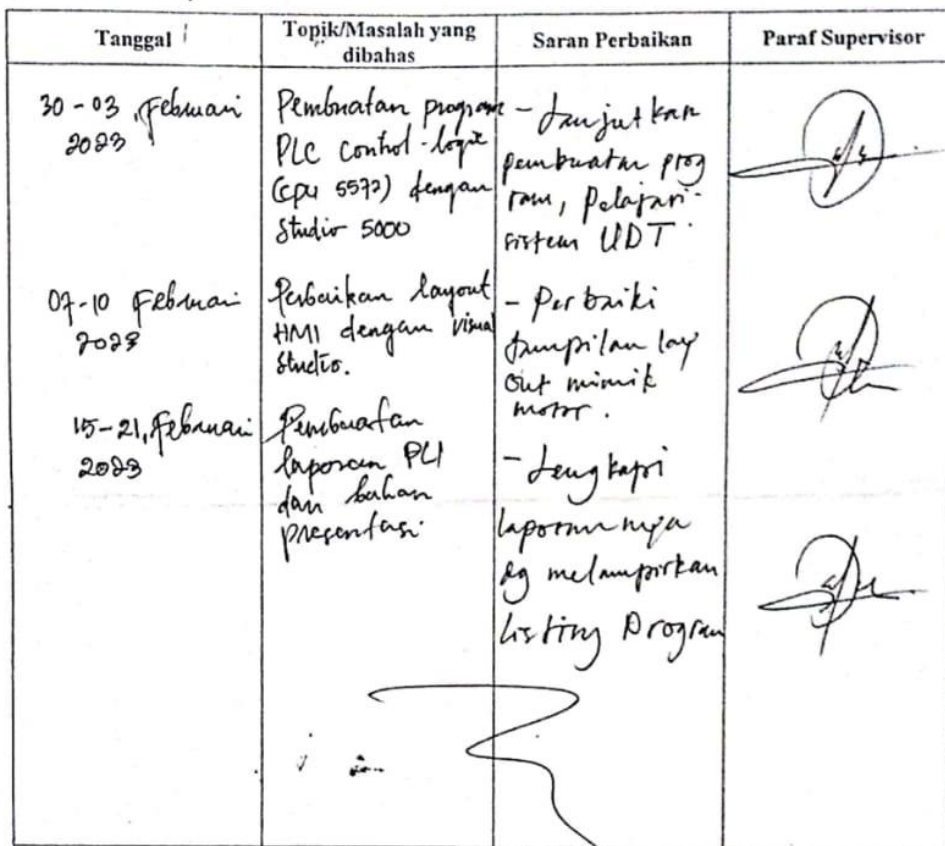 Tanggal
Topik/Masalah yang
dibahas
Saran Perbaikan
Paraf Supervisor
30 - 03, Februari
2023
Pembuatan program
PLC control-logic
(cpu 5572) dengan
Studio 5000
- Lanjutkan
pembuatan prog
ram, Pelajari
sistem UDT.
07-10 Februari
2023
Perbaikan layout
HMI dengan visual
Studio.
- Perbaiki
tampilan lay
out mimik
motor.
15-21, Februari
2023
Pembuatan
laporan PLI
dan bahan
presentasi.
- Lengkapi
laporannya
dg melampirkan
Listing Program